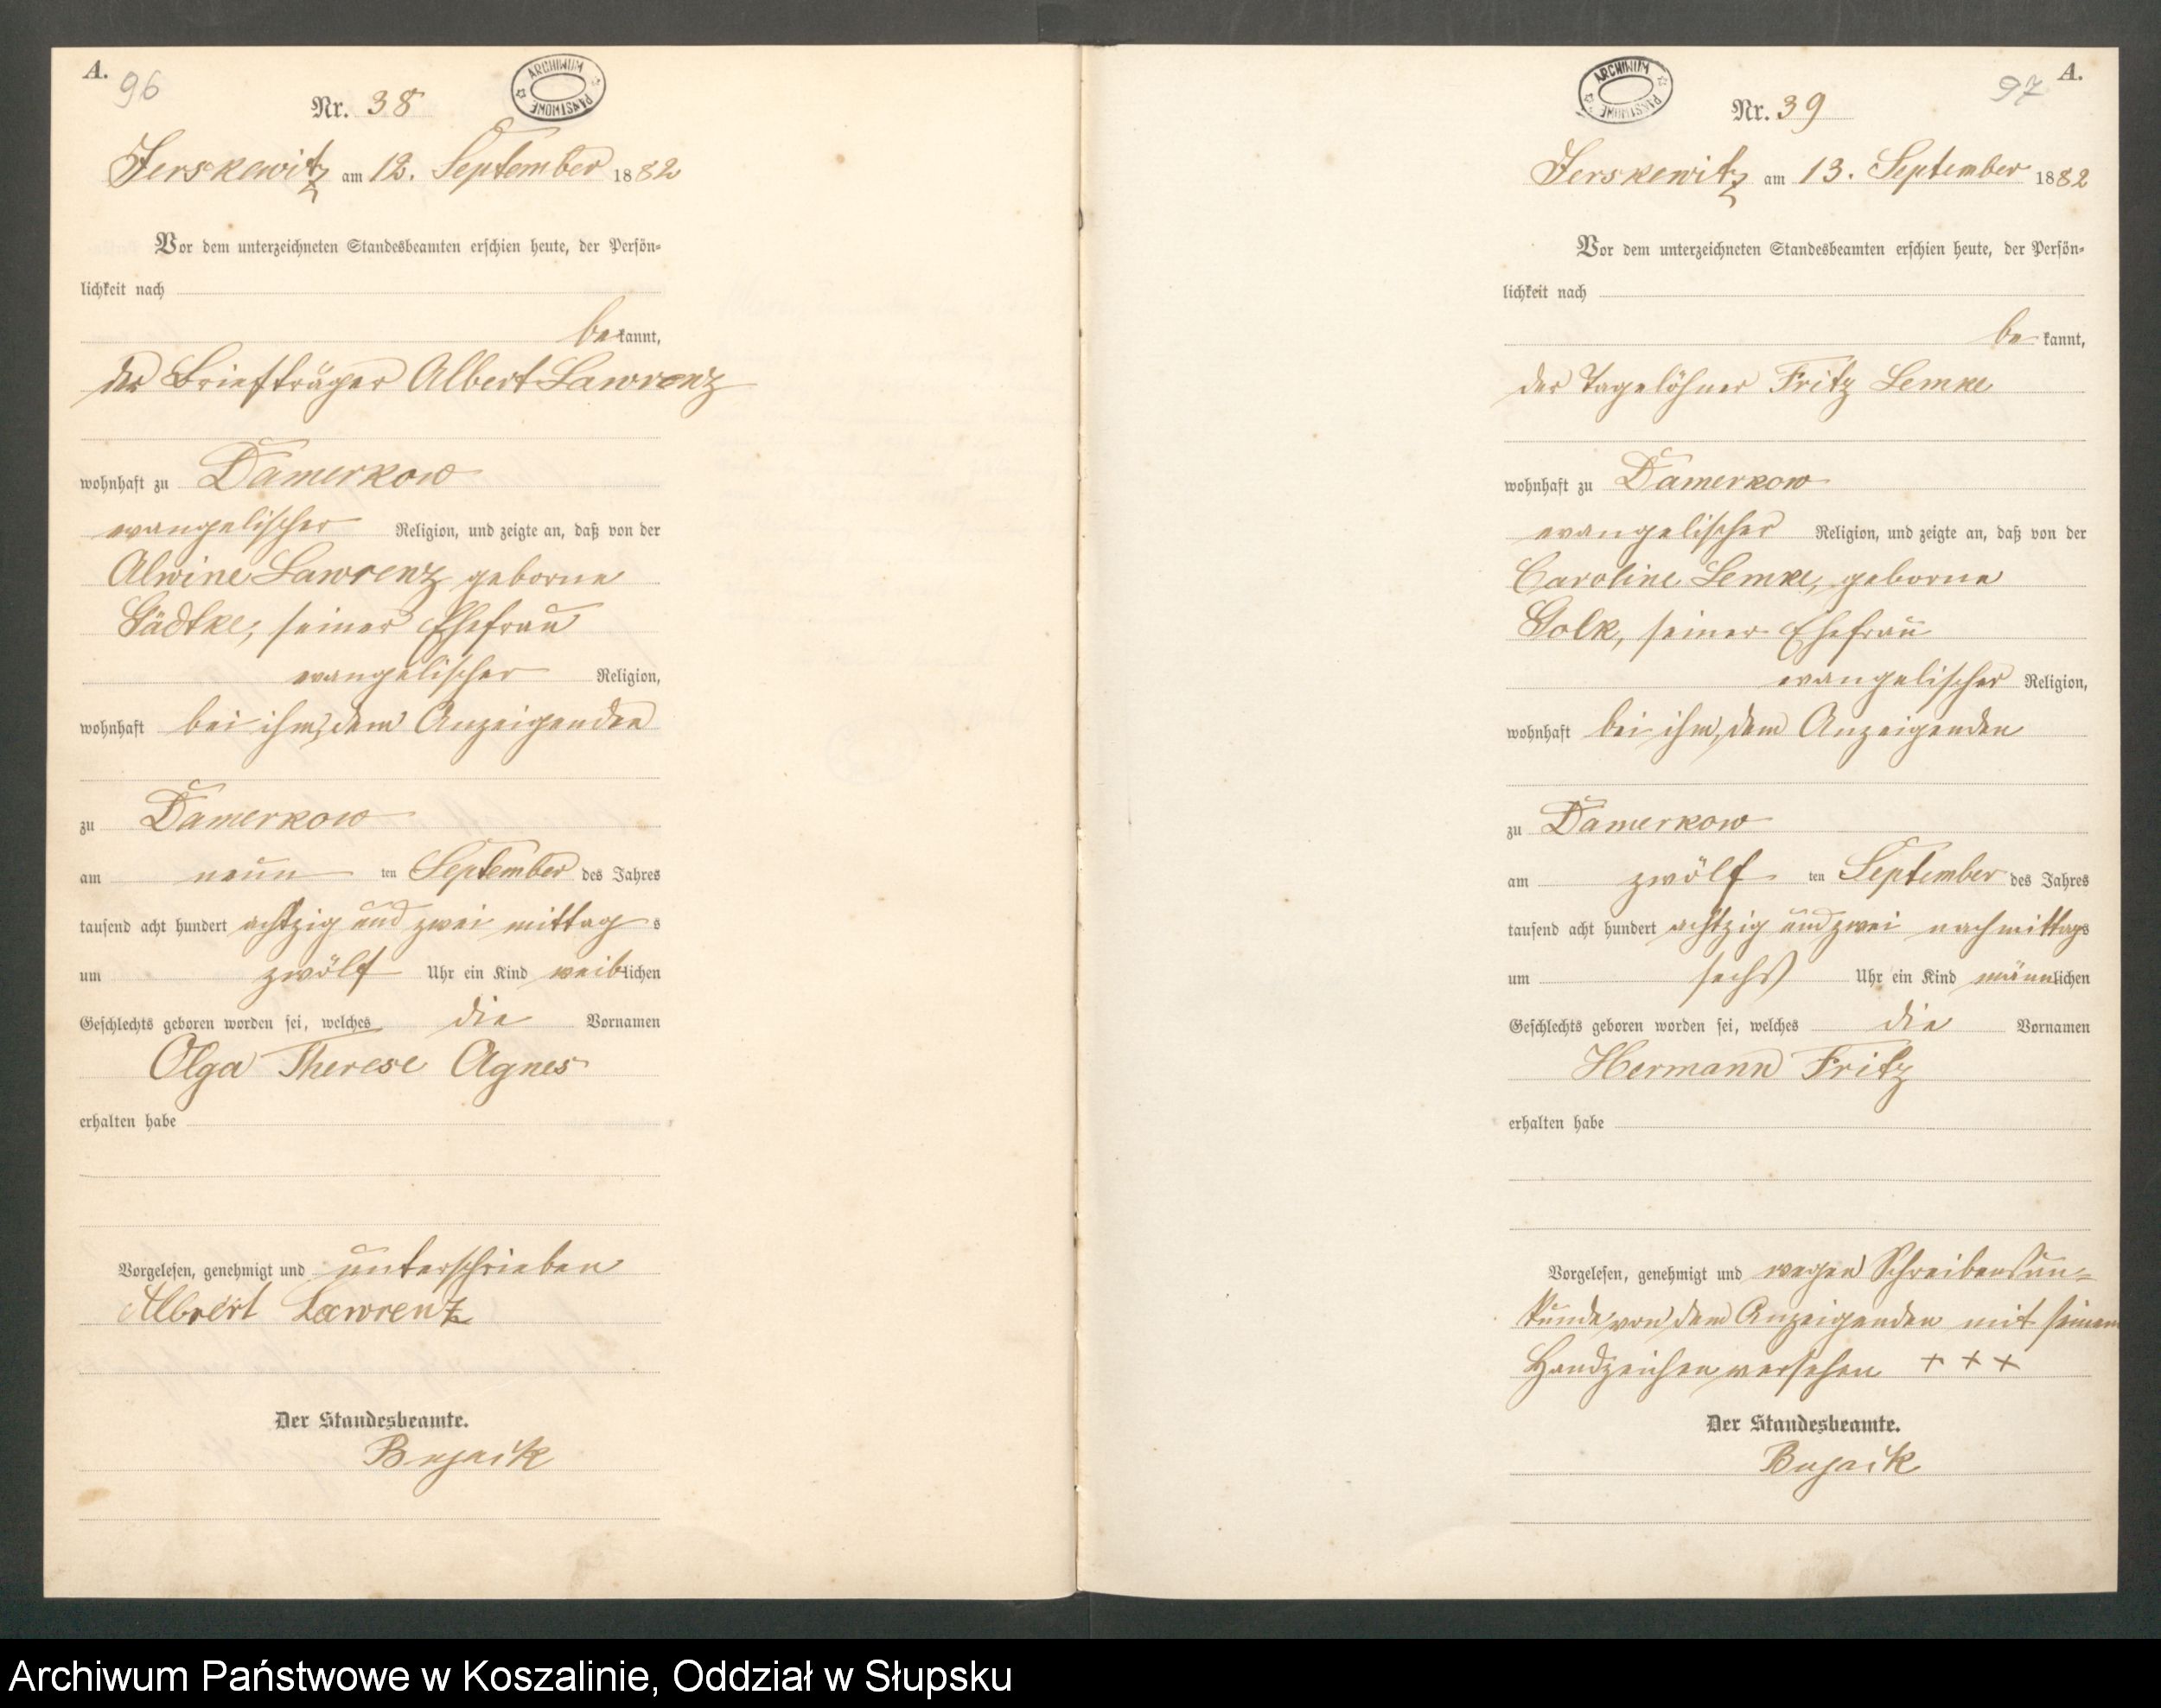 A.
96
ARCHIWUM PAŃSTWOWE
Nr. 38
Jerskewitz am 12. September 1882
Vor dem unterzeichneten Standesbeamten erschien heute, der Persön-
lichkeit nach
bekannt,
der Briefträger Albert Lawrenz
wohnhaft zu Damerkow
evangelischer Religion, und zeigte an, daß von der
Alwine Lawrenz geborne
Gädtke, seiner Ehefrau
evangelischer Religion,
wohnhaft bei ihm, dem Anzeigenden
zu Damerkow
am neun ten September des Jahres
tausend acht hundert achtzig und zwei mittags
um zwölf Uhr ein Kind weiblichen
Geschlechts geboren worden sei, welches die Vornamen
Olga Therese Agnes
erhalten habe
Vorgelesen, genehmigt und unterschrieben
Albert Lawrenz
Der Standesbeamte.
Bujack
A.
97
ARCHIWUM PAŃSTWOWE
Nr. 39
Jerskewitz am 13. September 1882
Vor dem unterzeichneten Standesbeamten erschien heute, der Persön-
lichkeit nach
bekannt,
der Tagelöhner Fritz Lemke
wohnhaft zu Damerkow
evangelischer Religion, und zeigte an, daß von der
Caroline Lemke, geborne
Golk, seiner Ehefrau
evangelischer Religion,
wohnhaft bei ihm, dem Anzeigenden
zu Damerkow
am zwölf ten September des Jahres
tausend acht hundert achtzig und zwei nachmittags
um sechs Uhr ein Kind männlichen
Geschlechts geboren worden sei, welches die Vornamen
Hermann Fritz
erhalten habe
Vorgelesen, genehmigt und wegen Schreibensun-
kunde von dem Anzeigenden mit seinem
Handzeichen versehen + + +
Der Standesbeamte.
Bujack
Archiwum Państwowe w Koszalinie, Oddział w Słupsku